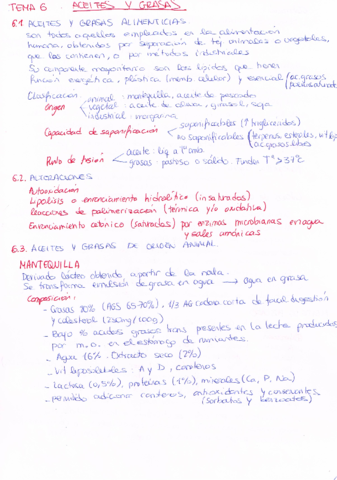 TEMA 6: ACEITES Y GRASAS
6.1 ACEITES Y GRASAS ALIMENTICIAS
Son todos aquellos empleados en la alimentación
humana, obtenidos por separación de tej. animales o vegetales,
que los contienen, o por métodos industriales
Su componente mayoritario son los lípidos que tienen
función energética, plástica (memb. celular) y esencial (ac. grasos
Clasificación:
Origen
animal: mantequilla, aceite de pescado
vegetal: aceite de oliva, girasol, soja
industrial: margarina
Capacidad de saponificación
saponificables (triglicéridos)
no saponificables (terpenos, esteroles,
ac. grasos libres
Punto de fusión
aceite: líq a Tª amb.
grasas: pastoso o sólido. Funde Tª >
6.2. ALTERACIONES
Autooxidación
Lipolisis o enranciamiento hidrolítico (insaturados)
Reacciones de polimerización (térmica y/o oxidativa)
Enranciamiento cetónico (saturados) por enzimas microbianas en agua
y sales amónicas
6.3. ACEITES Y GRASAS DE ORIGEN ANIMAL
MANTEQUILLA
Derivado lácteo obtenido a partir de la nata.
Se transforma emulsión de grasa en agua → agua en grasa
Composición:
- Grasas (AGS 65-70%), 1/3 AG cadena corta de fácil digestión
y colesterol (250mg/100g)
- Bajo % ácidos grasos trans presentes en la leche producidos
por m.o. en el estómago de rumiantes.
- Agua 16%. Extracto seco (2%)
- Vit liposolubles: A y D, carotenos
- Lactosa (0,5%), proteínas (1%), minerales (Ca, P, Na)
- Permitido adicionar carotenos, antioxidantes y conservantes
(sorbatos y benzoatos)